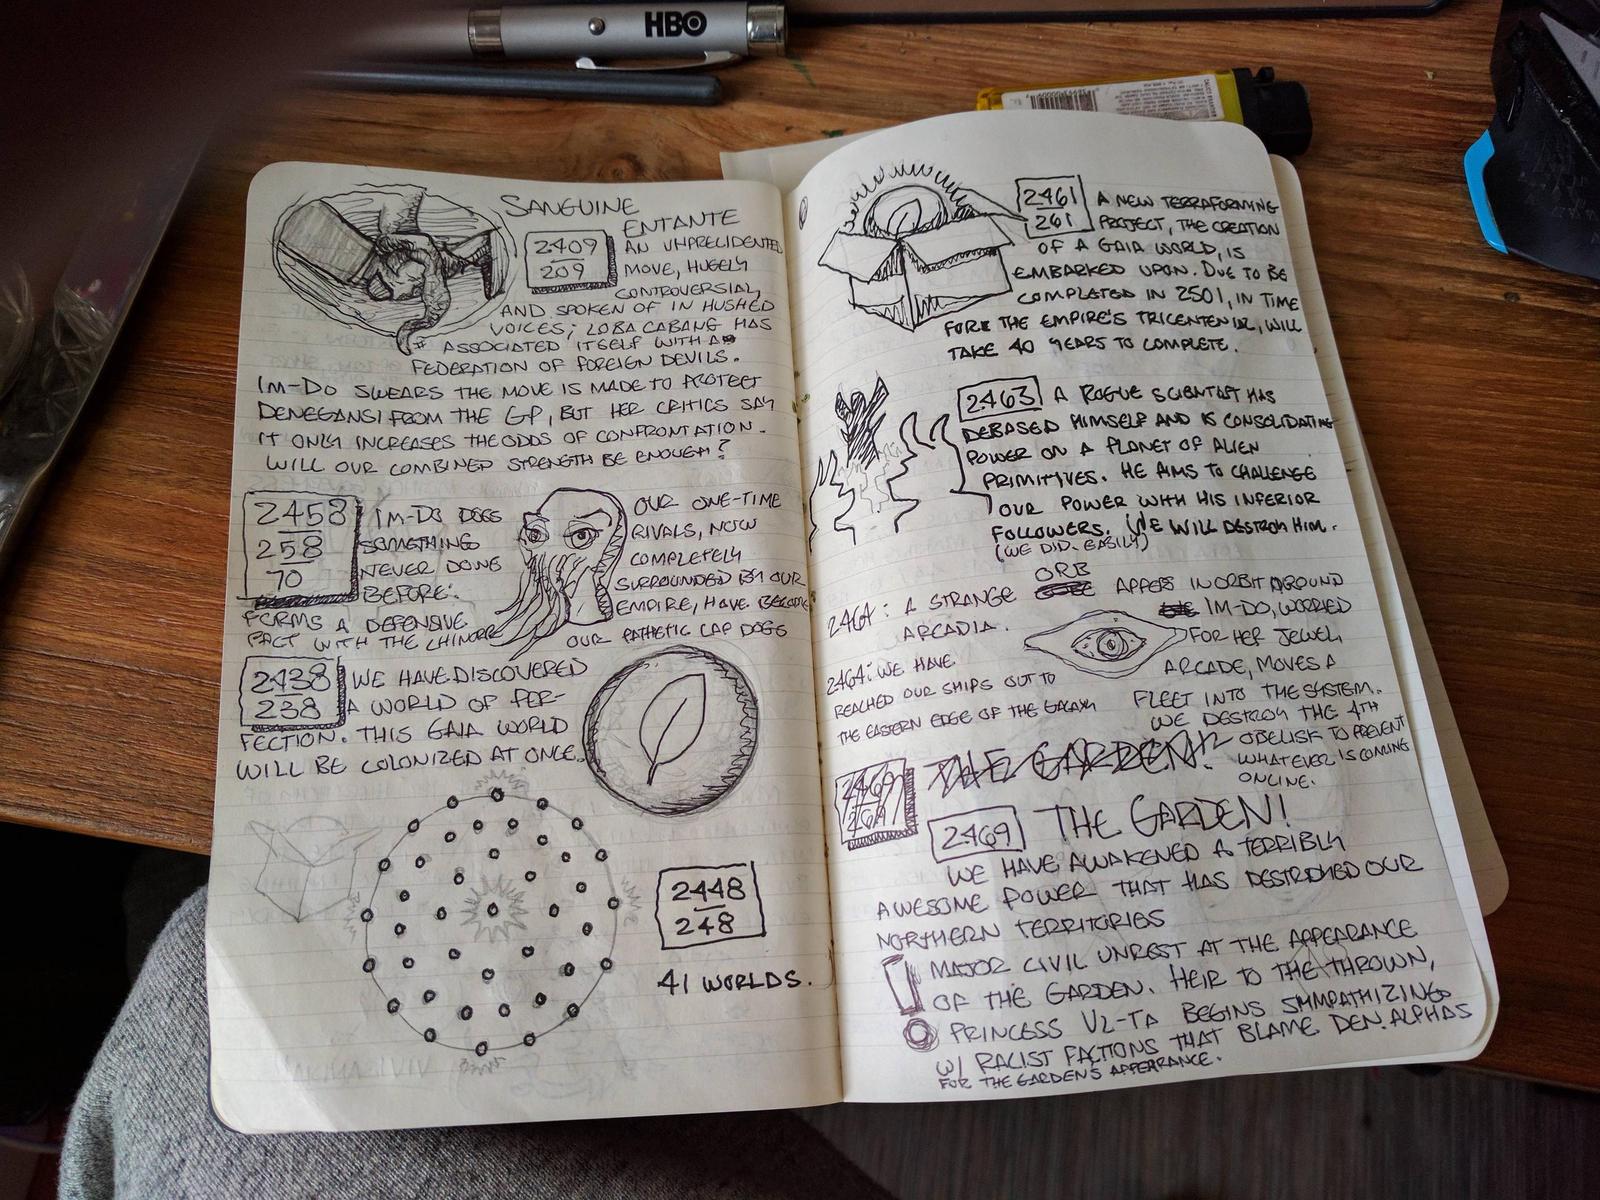 HBO
SANGUINE
ENTANTE
2409
209
AN UNPRECIDENTED
MOVE, HUGELY
CONTROVERSIAL,
AND SPOKEN OF IN HUSHED
VOICES; LOBA CABANG HAS
ASSOCIATED ITSELF WITH A
FEDERATION OF FOREIGN DEVILS.
IM-DO SWEARS THE MOVE IS MADE TO PROTECT
DENEGANSI FROM THE GP, BUT HER CRITICS SAY
IT ONLY INCREASES THE ODDS OF CONFRONTATION.
WILL OUR COMBINED STRENGTH BE ENOUGH?
2458
258
70
IM-DO DOES
SOMETHING
NEVER DONE
BEFORE:
FORMS A DEFENSIVE
PACT WITH THE CHINORR
OUR ONE-TIME
RIVALS, NOW
COMPLETELY
SURROUNDED BY OUR
EMPIRE, HAVE BECOME
OUR PATHETIC LAP DOGS
2438
238
WE HAVE DISCOVERED
A WORLD OF PER-
FECTION. THIS GAIA WORLD
WILL BE COLONIZED AT ONCE.
2448
248
41 WORLDS.
2461
261
A NEW TERRAFORMING
PROJECT, THE CREATION
OF A GAIA WORLD, IS
EMBARKED UPON. DUE TO BE
COMPLETED IN 2501, IN TIME
FOR THE EMPIRE'S TRICENTENIAL, WILL
TAKE 40 YEARS TO COMPLETE.
2463
A ROGUE SCIENTIST HAS
DEBASED HIMSELF AND IS CONSOLIDATING
POWER ON A PLANET OF ALIEN
PRIMITIVES. HE AIMS TO CHALLENGE
OUR POWER WITH HIS INFERIOR
FOLLOWERS. WE WILL DESTROY HIM.
(WE DID. EASILY)
2464: A STRANGE ORB APPERS IN ORBIT AROUND
ARCADIA.
IM-DO, WORRIED
FOR HER JEWEL,
ARCADE, MOVES A
FLEET INTO THE SYSTEM.
WE DESTROY THE 4TH
OBELISK TO PREVENT
WHATEVER IS COMING
ONLINE.
2464: WE HAVE
REACHED OUR SHIPS OUT TO
THE EASTERN EDGE OF THE GALAXY
2469
269
THE GARDEN!
2469
THE GARDEN!
WE HAVE AWAKENED A TERRIBLY
AWESOME POWER THAT HAS DESTROYED OUR
NORTHERN TERRITORIES
MAJOR CIVIL UNREST AT THE APPEARANCE
OF THE GARDEN. HEIR TO THE THROWN,
PRINCESS VL-TA BEGINS SYMPATHIZING
W/ RACIST FACTIONS THAT BLAME DEN. ALPHAS
FOR THE GARDEN'S APPEARANCE.